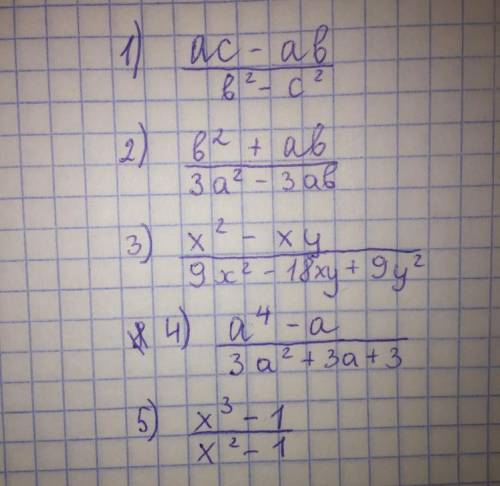 1) ac - ab
b² - c²
2) b² + ab
3a² - 3ab
3) x² - xy
9x² - 18xy + 9y²
4) a⁴ - a
3a² + 3a + 3
5) x³ - 1
x² - 1